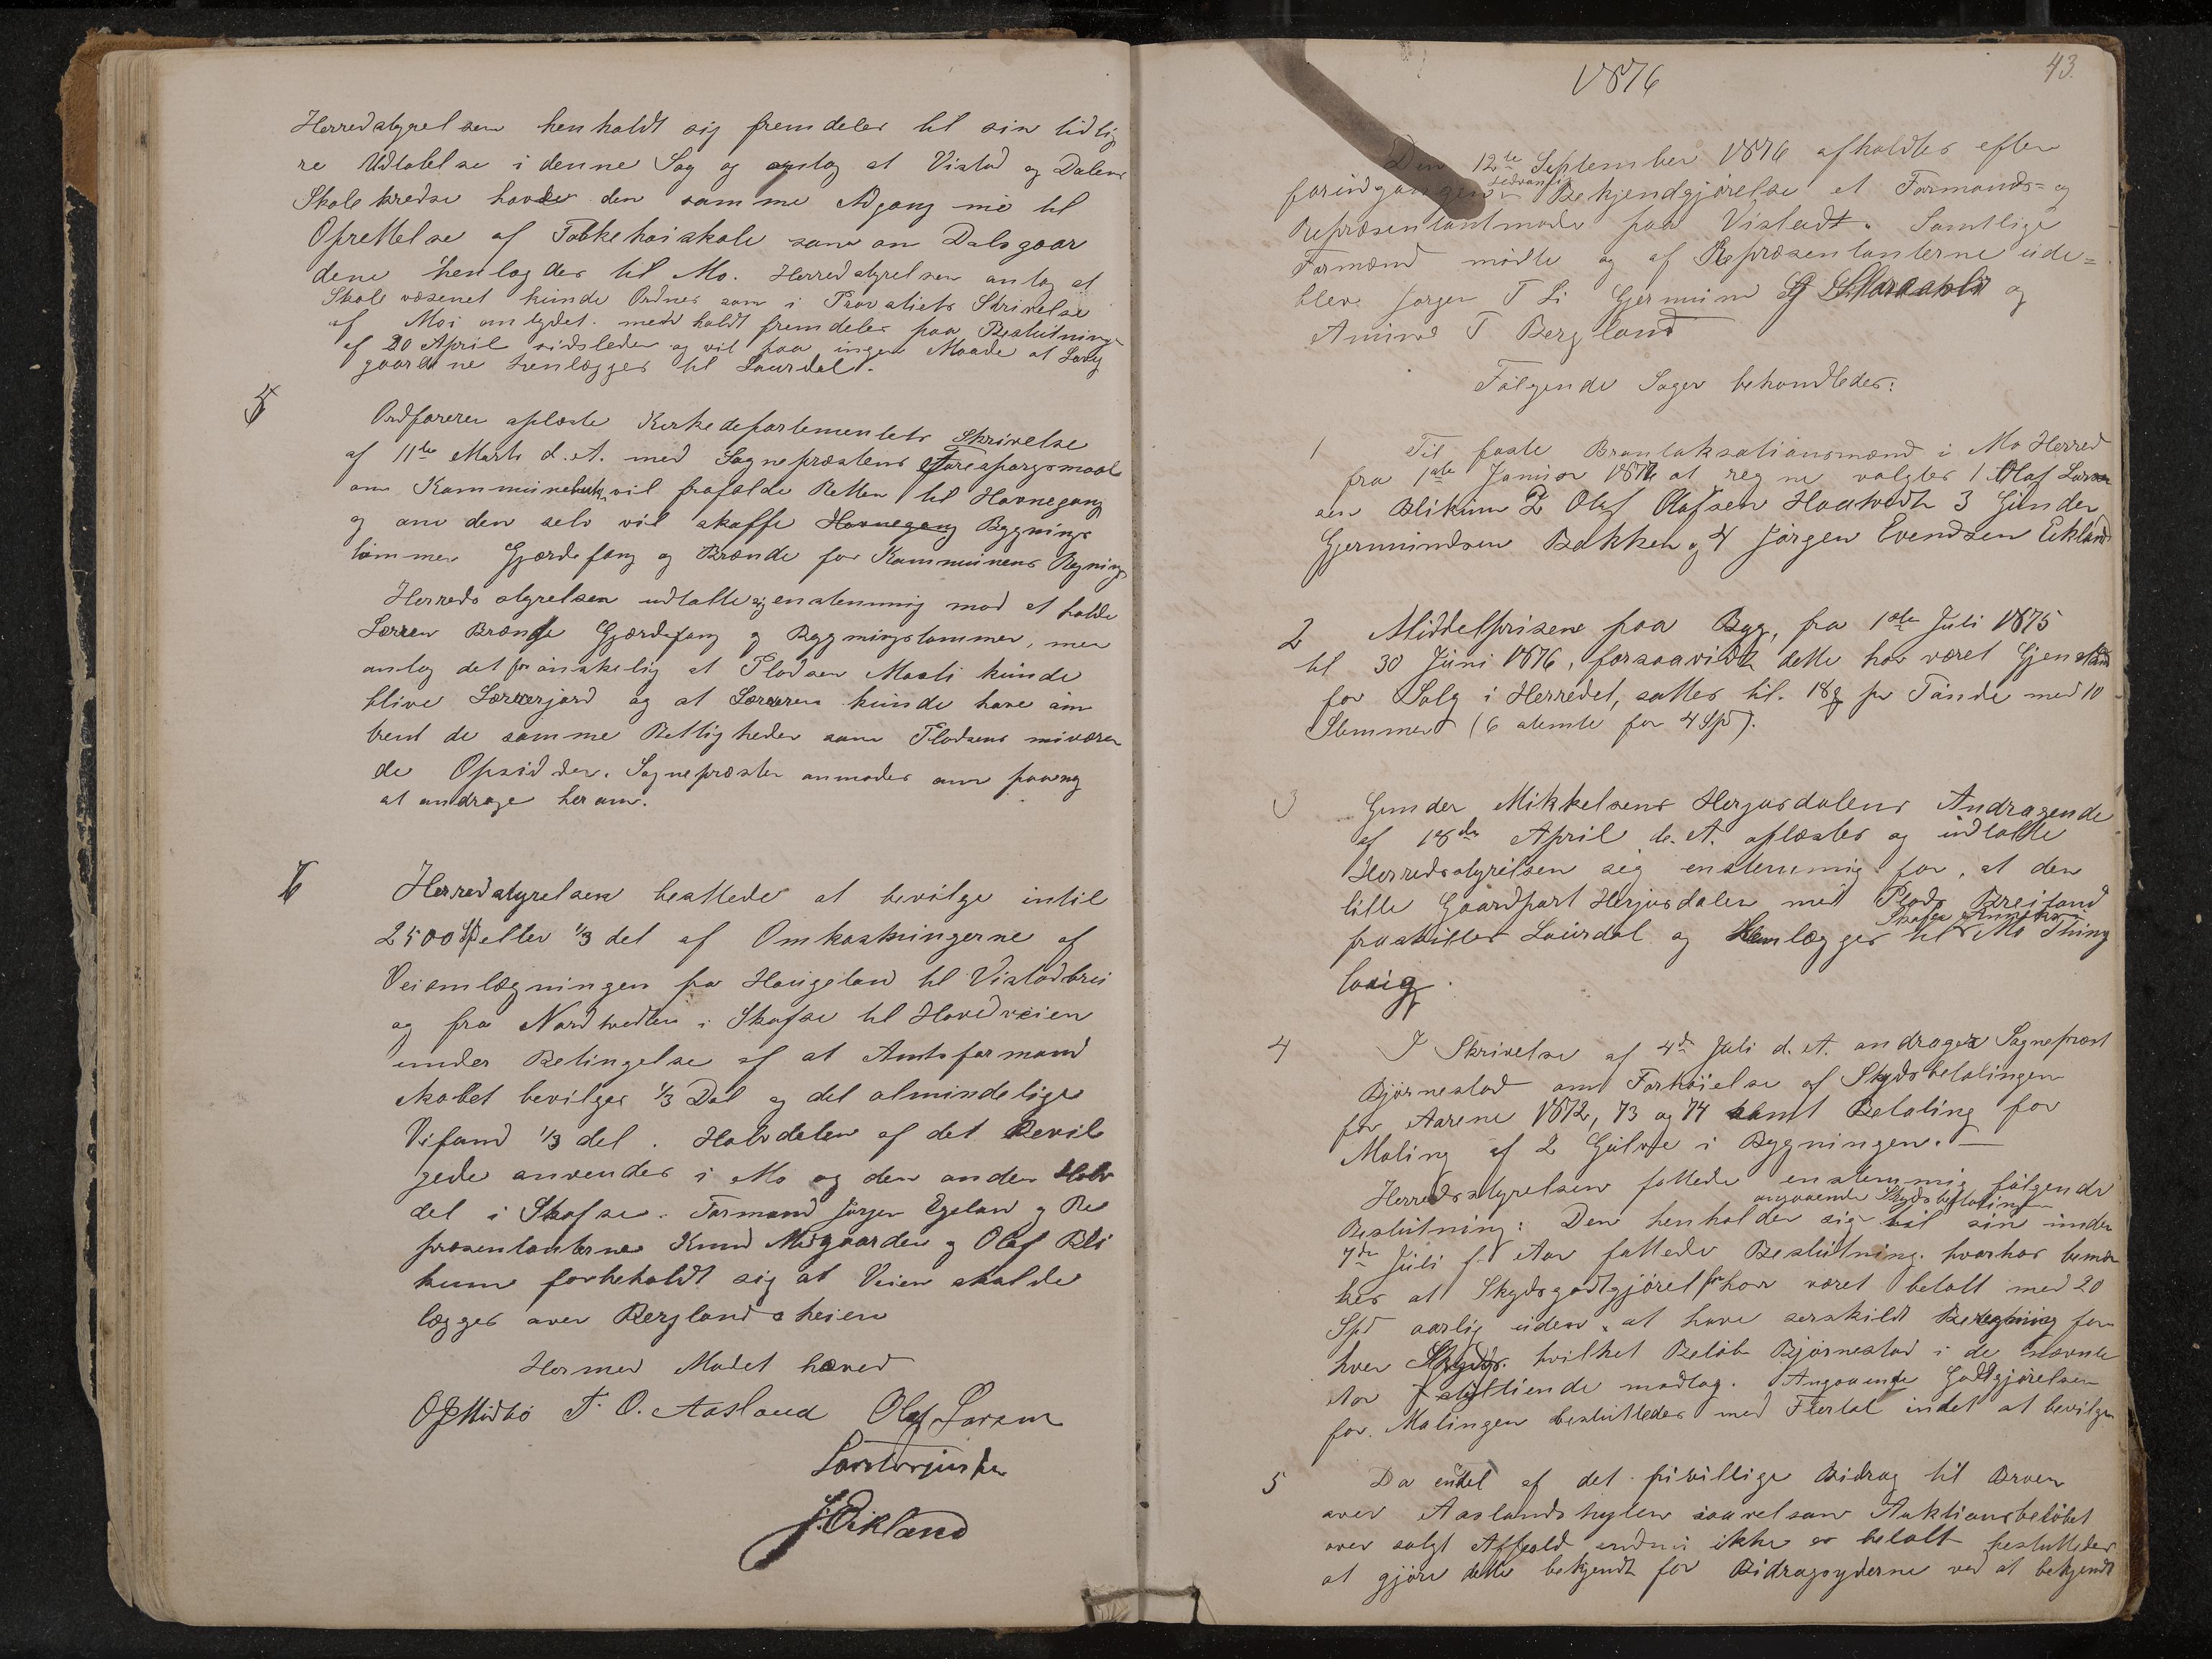 Herredstyrelsen henholdt sig fremdeles til sin tidlig
re Udtalelse i denne Sag og antog at Vistad og Dalens
Skolekredse havde den samme Adgang nu til
Oprettelse af Folkehøiskole som om Dalsgaar
dene henlagdes til Mo. Herredstyrelsen antog at
Skolevæsenet kunde Ordnes som i Provstiets Skrivelse
af Moi antydet. men holdt fremdeles paa Beslutning
af 20 April sidstleden og vil paa ingen Maade at
gaardene henlægges til Laurdal.
5
Ordføreren oplæste Kirkedepartementets Skrivelse
af 11te Marts d. A. med Sognepræstens Forespørgsmaal
om Kommunen vil frafalde Retten til Havnegang
og om den selv vil skaffe Havnegang Bygnings
tømmer Gjærdefang og Brænde for Kommunens Regning
Herredsstyrelsen udtalte sig enstemmig mod at holde
Brænde Gjærdefang og Bygningstømmer, men
antog det for ønskelig at Pladsen Mosli kunde
blive Lærerjord og at Læreren kunde have om
trent de samme Rettigheder som Pladsens nuværen
de Opsidder. Sognepræsten anmodes om paany
at andrage herom.
6
Herredstyrelsen besluttede at bevilge intil
2500 Spd eller 1/3 del af Omkostningerne af
Veiomlægningen fra Haugeland til Vistadbrei
og fra Nordtvedten i Skafse til Hovedveien
under Betingelse af at Amtsformand
skabet bevilger 1/3 Del og det almindelige
Veifand 1/3 del. Halvdelen af det Bevil
gede anvendes i Mo og den anden Halv
del i Skafse. Formand Jørgen Egeland og Re
præsentanterne Knud Midgaarden og Olaf Bli
kum forbeholdt sig at Veien skulde
lægges over Berglandsheien
Hermed Mødet hæved
O J Midbø T. O. Aasland Olaf Larsen
J. Eikland
1876
43.
Den 12te September 1876 afholdtes efter
foreindgangen sedvanlig Bekjendgjørelse et Formands- og
Repræsentantmøde paa Vistadt. Samtlige
Formænd mødte og af Repræsentanterne ude-
blev Jørgen T Li Germund og
Amund T Bergland
Følgende Sager behandledes:
1 Til faste Brantaksationsmænd i Mo Herred
fra 1ste Januar 1876 at regne valgtes 1 Olaf Larsen
sen Blikum 2 Olaf Olafsen Haatvedt 3 Gunder
Gjermundsen Bakken og 4 Jørgen Evendsen Eikland
2 Middelprisen paa Byg, fra 1ste Juli 1875
til 30 Juni 1876, forsaavidt dette har været Gjenstand
for Salg i Herredet, sattes til 18 pr Tønde med 10
Stemmer (6 stemte for 4 Spd).
3 Gunder Mikkelsens Herjusdalens Andragende
af 18de April d. A. oplæstes og udtalte
Herredsstyrelsen sig enstemmig for, at den
lille Gaardpart Herjusdalen med Plads Breiland
fraskilles Laurdal og Henlægges til Skafse Annex i Mo Thing
laug.
4 I Skrivelse af 4de Juli d. A. andrager Sognepræst
Bjørnestad om Forhøielse af Skydsbetalingen
for Aarene 1872, 73 og 74 samt Betaling for
Maling af 2 Gulve i Bygningen. —
Herredsstyrelsen fattede enstemmig følgende
Beslutning: Den henholder sig angaaende Skydsbetalingen til sin under
7de Juli f. Aar fattede Beslutning. hvorhos bemær
kes at Skydsgodtgjørelse har været betalt med 20
Spd aarlig uden at have særskildt Beregning for
hver Skyds. hvilket Beløb Bjørnestad i de nævnte
Aar stiltiende modtog. Angaaende Godtgjørelsen
for Malingen besluttedes med Flertal indet at bevilge
5 Da endel af det frivillige Bidrag til Broen
over Aaslandshylen saavelsom Auktionsbeløbet
over solgt Affald endnu ikke er betalt besluttedes
at gjøre dette bekjendt for Bidragsyderne ved at bekjendt